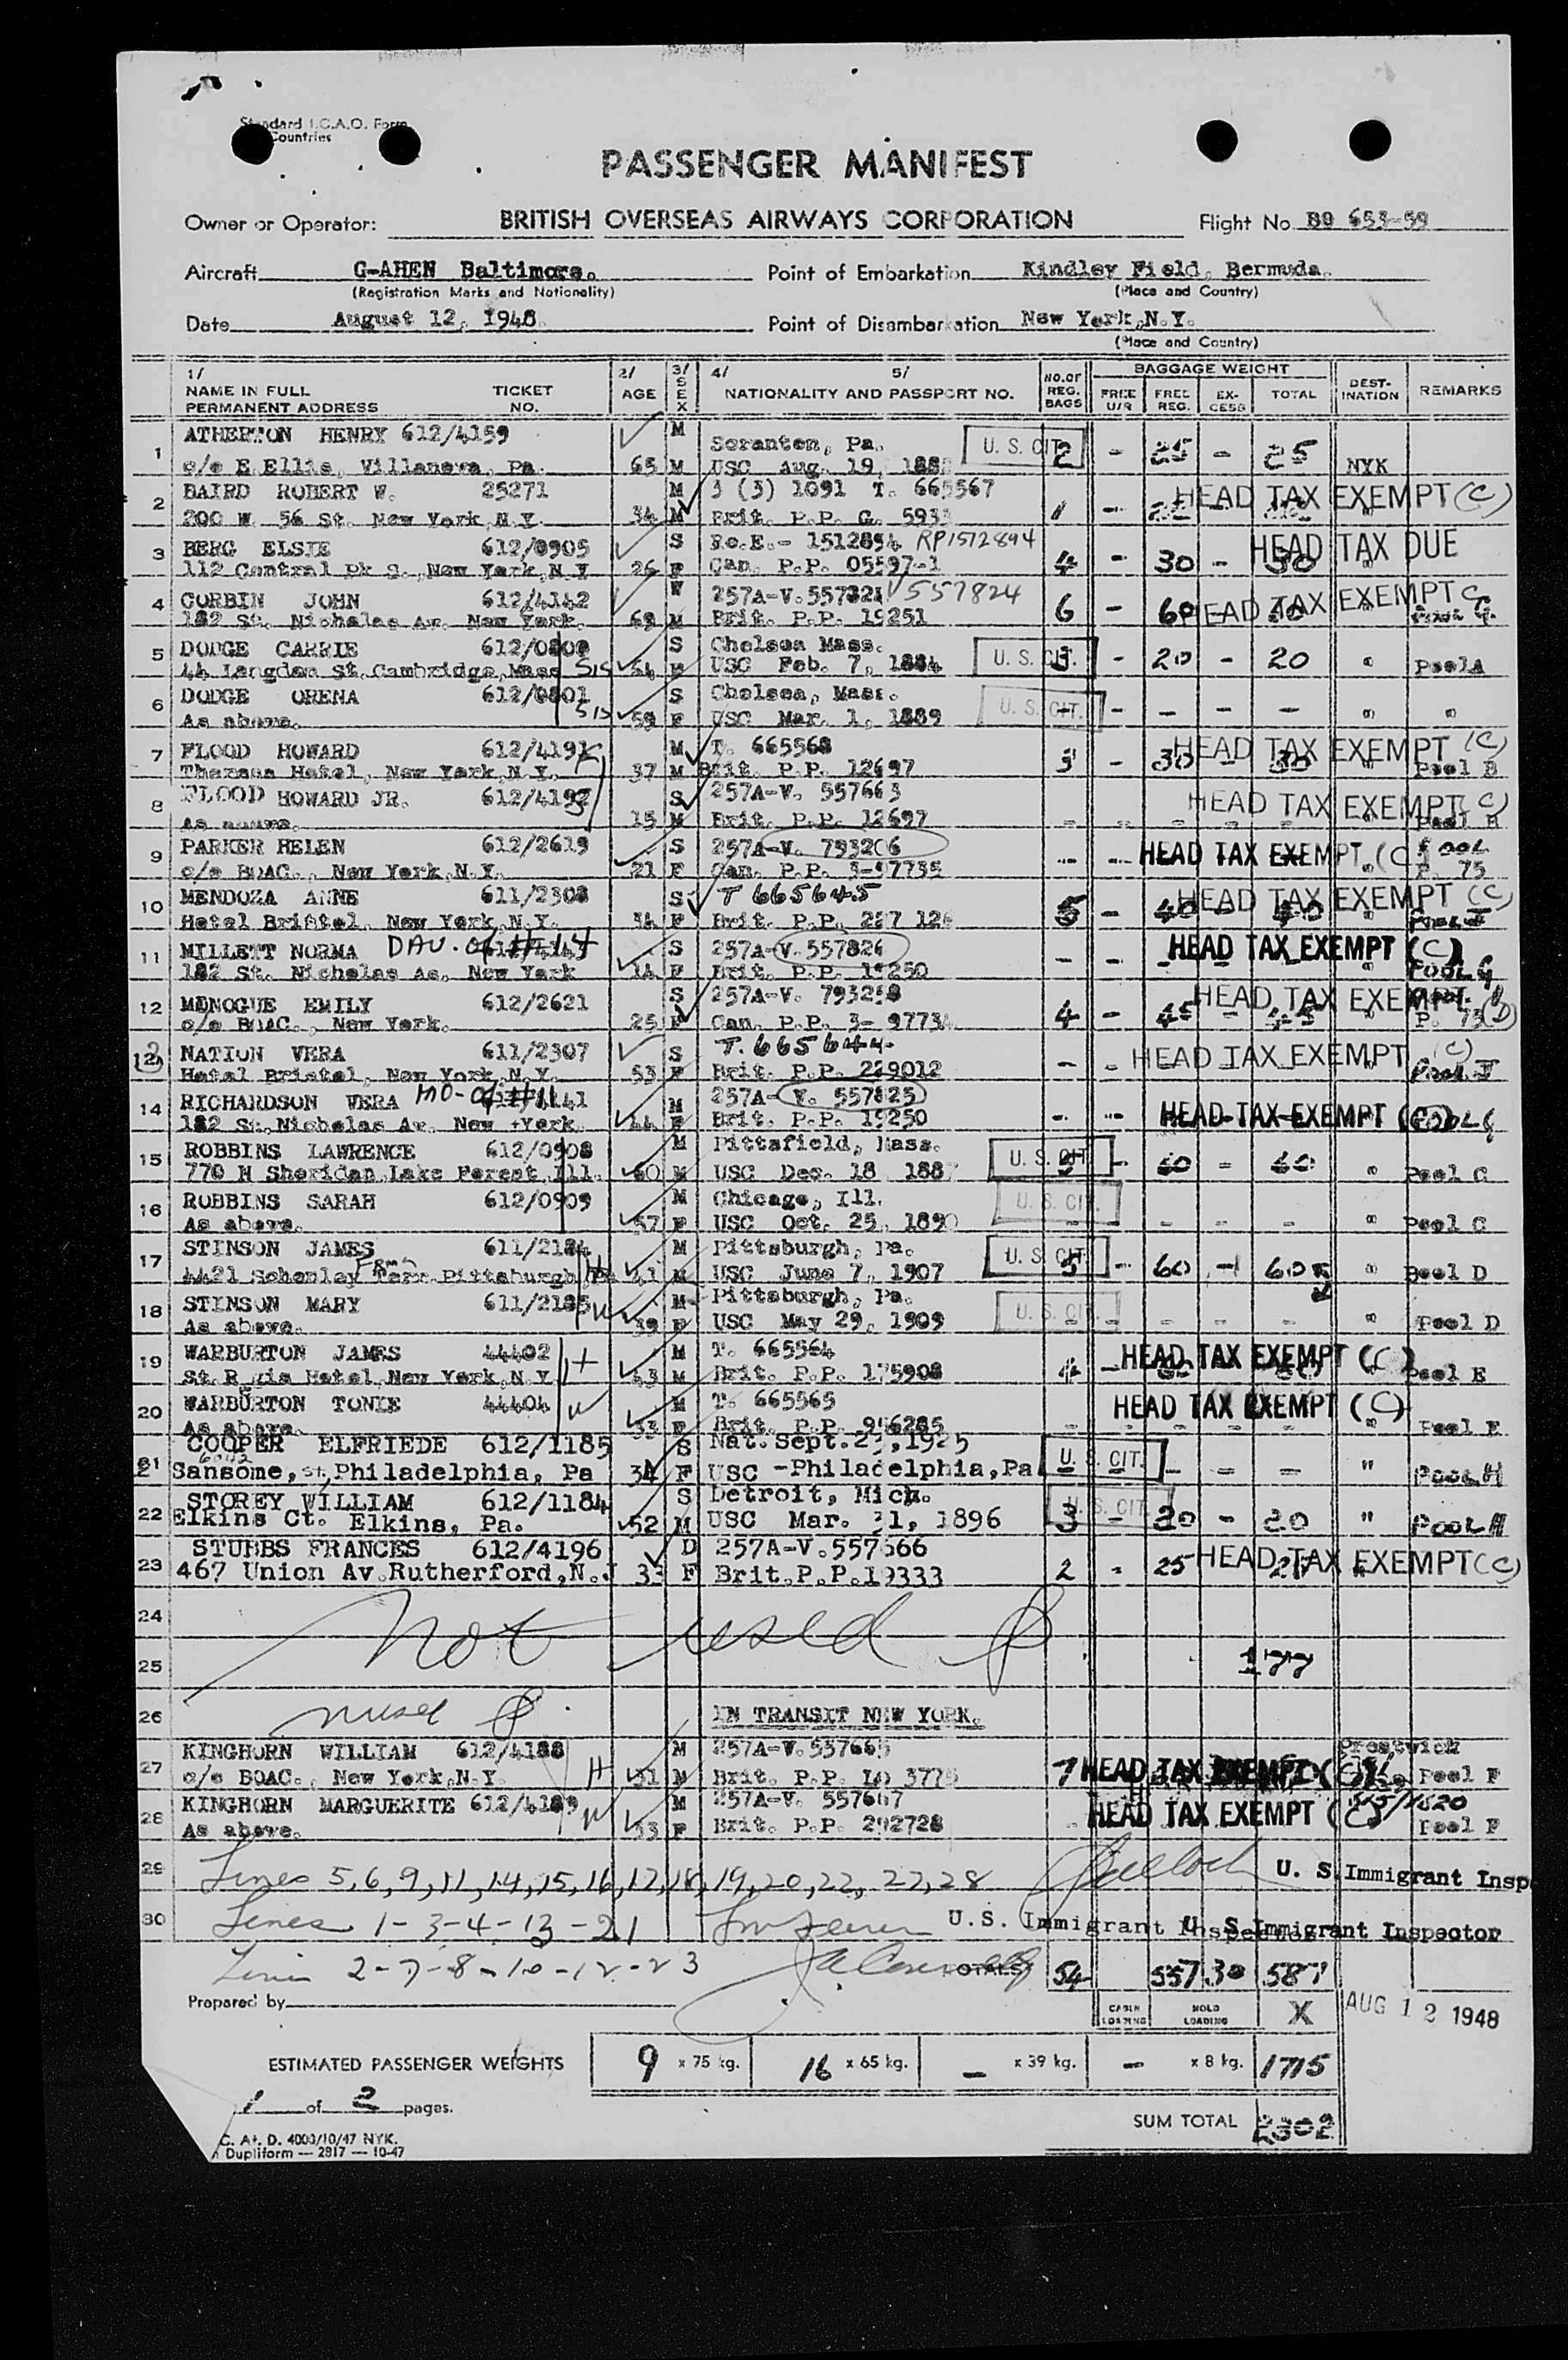 Standard I.C.A.O. Form
Countries
PASSENGER MANIFEST
Owner or Operator: BRITISH OVERSEAS AIRWAYS CORPORATION Flight No. BO 653-59
Aircraft G-AHEN Baltimore. Point of Embarkation Kindley Field, Bermuda.
(Registration Marks and Nationality) (Place and Country)
Date August 12, 1948. Point of Disembarkation New York, N.Y.
(Place and Country)
1/ 2/ 3/ 4/ 5/ NO. OF BAGGAGE WEIGHT
NAME IN FULL TICKET AGE SEX NATIONALITY AND PASSPORT NO. REG. FREE FREE EX- TOTAL DEST- REMARKS
PERMANENT ADDRESS NO. BAGS U/R REG. CESS INATION
1 ATHERTON HENRY 612/4159 M Scranton, Pa. U. S. CIT. 2 - 25 - 25
c/o E.Ellis, Villanova, Pa. 65 M USC Aug. 19, NYK
2 BAIRD ROBERT W. 25271 M 3 (3) 1091 T. 665567 HEAD TAX EXEMPT (C)
200 W. 56 St. New York, N.Y. 34 M Brit. P.P. G.
3 BERG ELSIE 612/0905 S Ro.E.- 1512894 RP1512894 HEAD TAX DUE
112 Central Pk S., New York, N.Y 26 F Can. P.P. 05597-1 4 - 30 - 30 "
4 CORBIN JOHN 612/4142 W 257A-V. 557824 HEAD TAX EXEMPT C
182 St. Nicholas Av. New York. 69 M Brit. P.P. 19251 6 - 60
5 DODGE CARRIE 612/0800 S Chelsea Mass. U. S. CIT. - 20 - 20 " Pool A
44 Langdon St. Cambridge, Mass SIS 64 F USC Feb. 7, 1884
6 DODGE ORENA 612/0801 S Chelsea, Mass. U. S. CIT. - - - - " "
As above. SIS 59 F USC Mar. 1, 1889
7 FLOOD HOWARD 612/4191 M T. 665568 HEAD TAX EXEMPT (C)
Theresa Hotel, New York, N.Y. 37 M Brit. P.P. 12697 3 - 30 - 30 " Pool B
8 FLOOD HOWARD JR. 612/4192 S 257A-V. 557663 HEAD TAX EXEMPT (C)
As above. 15 M Brit. P.P. 12697 Pool B
9 PARKER HELEN 612/2619 S 257A-V. 793206 HEAD TAX EXEMPT (C) Pool
c/o BOAC., New York, N.Y. 21 F Can. P.P. 3-97735 P. 75
10 MENDOZA ANNE 611/2308 S T 665645 HEAD TAX EXEMPT (C)
Hotel Bristol, New York, N.Y. 34 F Brit. P.P. 5 - 40 - 40 Pool J
11 MILLETT NORMA DAU. of #14 S 257A-V. 557826 HEAD TAX EXEMPT (C)
182 St. Nicholas Av. New York 14 F Brit. P.P. 19250 POOL G
12 MENOGUE EMILY 612/2621 S 257A-V. 793258 HEAD TAX EXEMPT
c/o BOAC., New York. 25 F Can. P.P. 3- 4 - 45 - 45 P. 75
NATION VERA 611/2307 S T. 665644 HEAD TAX EXEMPT (C)
Hotel Bristol, New York, N.Y. 53 F Brit. P.P. 229012 Pool J
14 RICHARDSON VERA MO-of #11 M 257A-V. 557825 HEAD TAX EXEMPT (C)
182 St. Nicholas Av. New York. 44 F Brit. P.P. 19250 POOL G
15 ROBBINS LAWRENCE 612/0908 M Pittsfield, Mass. U. S. CIT.
770 N Sheridan, Lake Forest, Ill. 60 M USC Dec. 18 - 60 - 60 " Pool C
16 ROBBINS SARAH 612/0909 M Chicago, Ill. U. S. CIT.
As above. 57 F USC Oct. 25, 1890 - - - - " Pool C
17 STINSON JAMES 611/2184 M Pittsburgh, Pa. U. S. CIT.
4421 Schenley Farms Terr. Pittsburgh Pa H 41 M USC June 7, 1907 5 - 60 - 60 " Pool D
18 STINSON MARY 611/2185 M Pittsburgh, Pa. U. S. CIT.
As above. W 39 F USC May 29, 1909 - - - - - " Pool D
19 WARBURTON JAMES 44402 M T. 665564 HEAD TAX EXEMPT (C)
St. Regis Hotel, New York, N.Y H 43 M Brit. P.P. 175908 4 Pool E
20 WARBURTON TONIE 44404 W M T. 665565 HEAD TAX EXEMPT (C)
As above. 33 F Brit. P.P. 956285 Pool E
COOPER ELFRIEDE 612/1185 S Nat. Sept. 1925 U. S. CIT.
21 6042 Sansome, St, Philadelphia, Pa 34 F USC -Philadelphia, Pa - - - - - " POOL H
STOREY WILLIAM 612/1184 S Detroit, Mich. U. S. CIT.
22 Elkins Ct. Elkins, Pa. 52 M USC Mar. 31, 1896 3 - 20 - 20 " POOL H
STUBBS FRANCES 612/4196 D 257A-V.557666 HEAD TAX EXEMPT (C)
23 467 Union Av. Rutherford, N.J 33 F Brit.P.P.19333 2 - 25
24 Not used
25 177
26 nused IN TRANSIT NEW YORK.
27 KINGHORN WILLIAM 612/4188 M 257A-V. 557665 Prestwich
c/o BOAC., New York, N.Y. H 31 M Brit. P.P. 7 HEAD TAX EXEMPT (C) Pool F
28 KINGHORN MARGUERITE 612/4189 W M 257A-V. 557667 HEAD TAX EXEMPT (C)
As above. 33 F Brit. P.P. 292728 Pool F
29 Lines 5,6,9,11,14,15,16,17,18,19,20,22, 27,28 U. S. Immigrant Inspe
30 Lines 1-3-4-13-21 U.S. Immigrant Inspector U. S. Immigrant Inspector
Lines 2-7-8-10-12-23 TOTALS 54 557 30 587
Prepared by CABIN LOADING HOLD LOADING X AUG 12 1948
ESTIMATED PASSENGER WEIGHTS 9 x 75 kg. 16 x 65 kg. - x 39 kg. - x 8 kg. 1715
1 of 2 pages.
SUM TOTAL 2302
C. At. D. 4000/10/47 NYK.
Dupliform — 2817 — 10-47